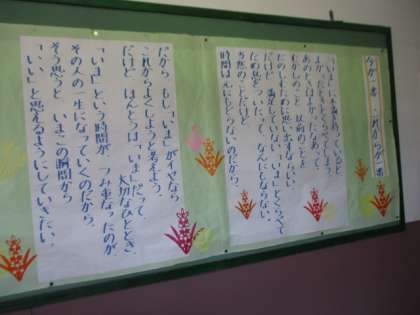 今が一番 これからが一番
「いま」に不満をもっていると
あのときは よかったなあ って
のことや 以前のことを
ために思い出すならいい
だけど 満足していない「いま」とくらべて
ため息をついたって なんにもならない
当然のことだけど
時間は元にもどらないのだから。
だから もし「いま」がイヤなら
これからよくしようと考えよう。
だけど ほんとうは「いま」だって
大切なひととき
「いま」という時間が つみ重なったのが
その人の一生になっていくのだから。
そう思うと いまこの瞬間から
「いい」と思えるようにしていきたい。